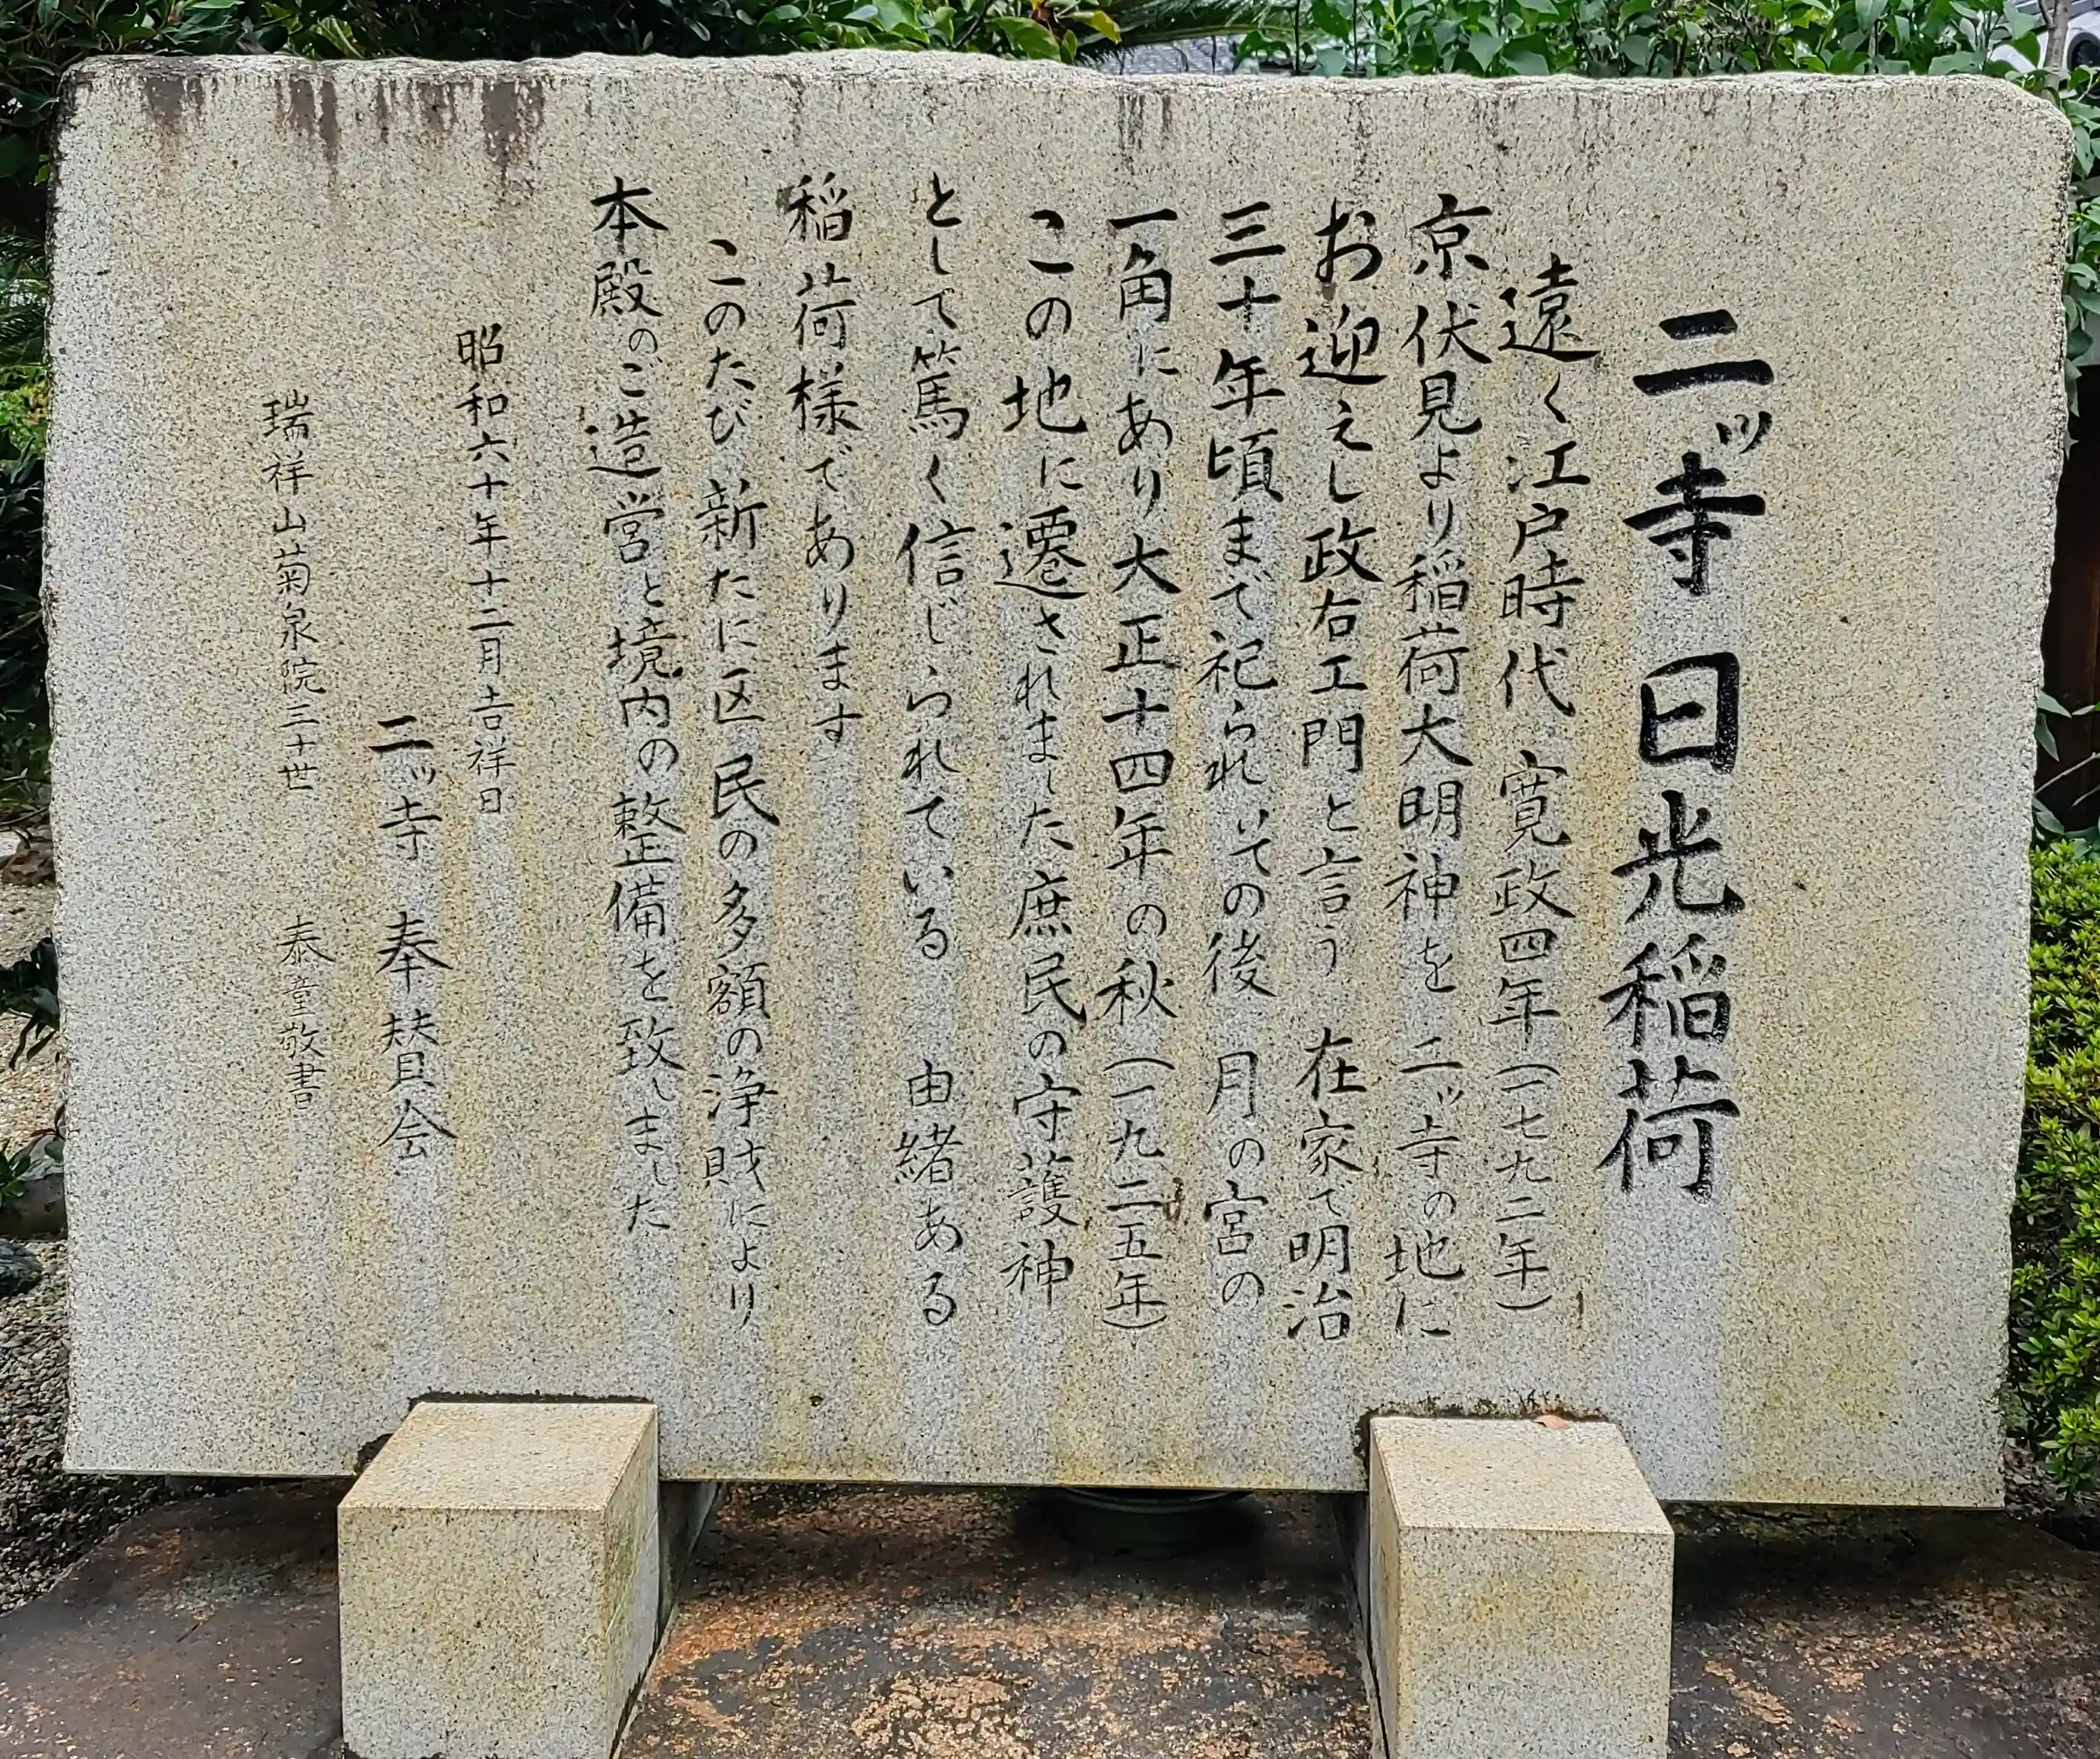 二ッ寺 日光稲荷
遠く江戸時代 寛政四年(一七九二年)
京伏見より稲荷大明神を 二ッ寺の地に
お迎えし政右エ門と言う 在家で明治
三十年頃まで祀られその後 月の宮の
一角にあり大正十四年の秋(一九二五年)
この地に遷されました庶民の守護神
として篤く信じられている 由緒ある
稲荷様であります
このたび新たに区民の多額の浄財により
本殿のご造営と境内の整備を致しました
昭和六十年十二月吉祥日
二ッ寺 奉賛会
瑞祥山菊泉院三十世 泰童敬書